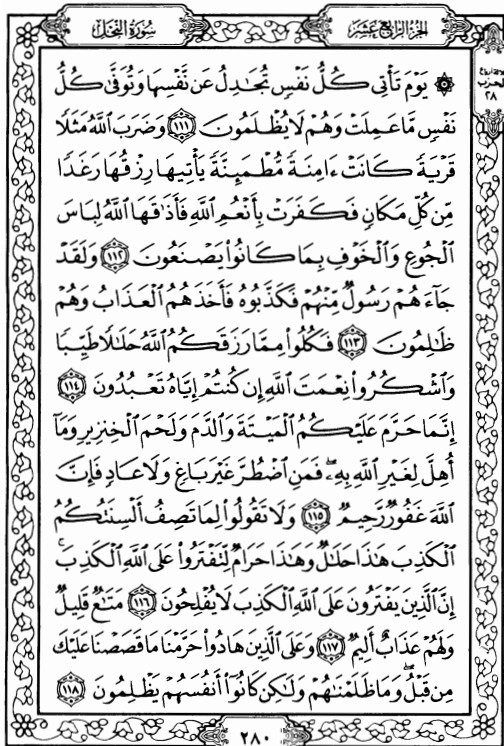 سُورَةُ النَّحْلِ
الجُزْءُ الرَّابِعَ عَشَرَ
۞ يَوْمَ تَأْتِي كُلُّ نَفْسٍ تُجَٰدِلُ عَن نَّفْسِهَا وَتُوَفَّىٰ كُلُّ
نَفْسٍ مَّا عَمِلَتْ وَهُمْ لَا يُظْلَمُونَ ١١١ وَضَرَبَ ٱللَّهُ مَثَلًا
قَرْيَةً كَانَتْ ءَامِنَةً مُّطْمَئِنَّةً يَأْتِيهَا رِزْقُهَا رَغَدًا
مِّن كُلِّ مَكَانٍ فَكَفَرَتْ بِأَنْعُمِ ٱللَّهِ فَأَذَٰقَهَا ٱللَّهُ لِبَاسَ
ٱلْجُوعِ وَٱلْخَوْفِ بِمَا كَانُوا۟ يَصْنَعُونَ ١١٢ وَلَقَدْ
جَآءَهُمْ رَسُولٌ مِّنْهُمْ فَكَذَّبُوهُ فَأَخَذَهُمُ ٱلْعَذَابُ وَهُمْ
ظَٰلِمُونَ ١١٣ فَكُلُوا۟ مِمَّا رَزَقَكُمُ ٱللَّهُ حَلَٰلًا طَيِّبًا
وَٱشْكُرُوا۟ نِعْمَتَ ٱللَّهِ إِن كُنتُمْ إِيَّاهُ تَعْبُدُونَ ١١٤
إِنَّمَا حَرَّمَ عَلَيْكُمُ ٱلْمَيْتَةَ وَٱلدَّمَ وَلَحْمَ ٱلْخِنزِيرِ وَمَآ
أُهِلَّ لِغَيْرِ ٱللَّهِ بِهِۦ ۖ فَمَنِ ٱضْطُرَّ غَيْرَ بَاغٍ وَلَا عَادٍ فَإِنَّ
ٱللَّهَ غَفُورٌ رَّحِيمٌ ١١٥ وَلَا تَقُولُوا۟ لِمَا تَصِفُ أَلْسِنَتُكُمُ
ٱلْكَذِبَ هَٰذَا حَلَٰلٌ وَهَٰذَا حَرَامٌ لِّتَفْتَرُوا۟ عَلَى ٱللَّهِ ٱلْكَذِبَ ۚ
إِنَّ ٱلَّذِينَ يَفْتَرُونَ عَلَى ٱللَّهِ ٱلْكَذِبَ لَا يُفْلِحُونَ ١١٦ مَتَٰعٌ قَلِيلٌ
وَلَهُمْ عَذَابٌ أَلِيمٌ ١١٧ وَعَلَى ٱلَّذِينَ هَادُوا۟ حَرَّمْنَا مَا قَصَصْنَا عَلَيْكَ
مِن قَبْلُ ۖ وَمَا ظَلَمْنَٰهُمْ وَلَٰكِن كَانُوٓا۟ أَنفُسَهُمْ يَظْلِمُونَ ١١٨
الحزب
٢٨
٢٨٠